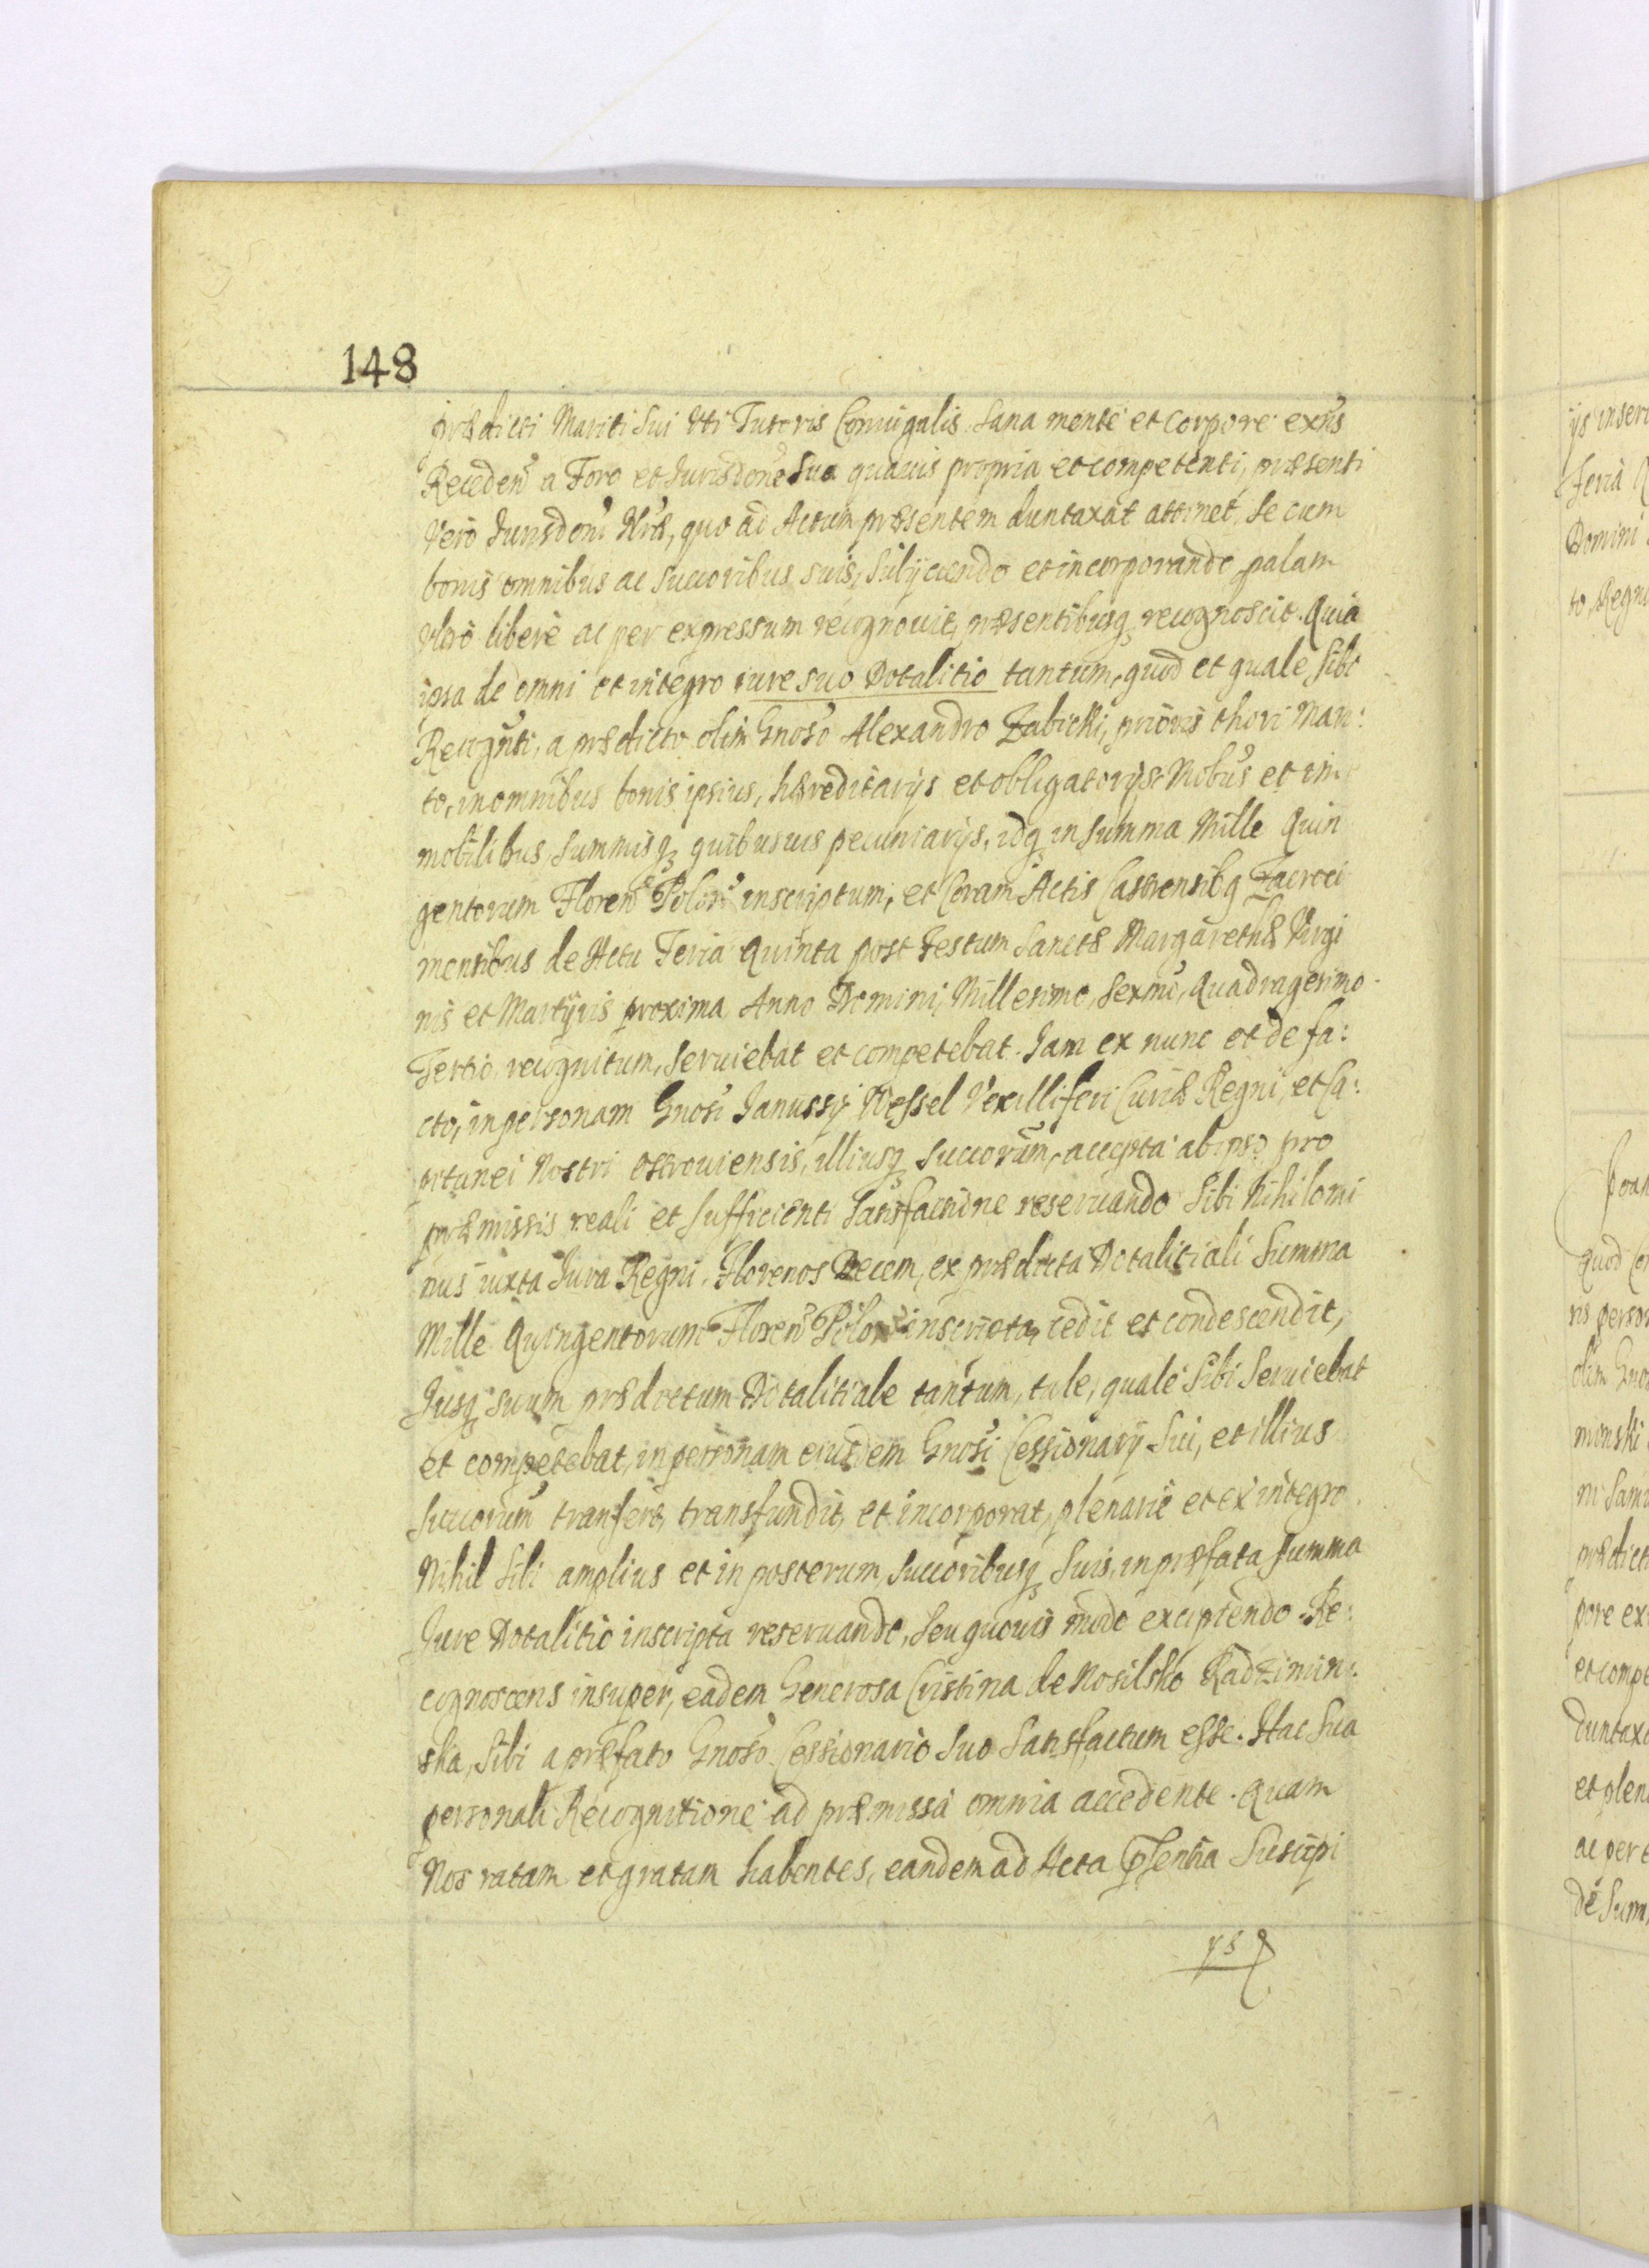 148
prædicti Mariti Sui uti Tutoris Coniugalis sana mente et corpore exñs
Receden̄ a Foro et Jurisdone Sua quauis propria et competenti, præsenti
Vero Jurisdoni Nræ, quo ad Actum præsentem duntaxat attinet, Se cum
bonis omnibus ac Succoribus suis, subÿciendo et incorporando, palam
libere ac per expressum recognouit, præsentibusq recognoscit. Quia
ipsa de omni et integro iure suo Dotalitio tantum, quod et quale sibi
Recognti, a prædicto olim Gnoso Alexandro Zabicki, prioris thori Mari:
to, in omnibus bonis ipsius, hæreditarÿs et obligatorÿs Mobus et im
mobilibus, Summisq quibusuis pecuniarÿs, idq in Summa Mille Quin
gentorum Floren Polon inscriptum, et Coram Actis Castrensibq Zacroci
mensibus de Actu Feria Quinta post Festum Sanctæ Margarethæ Virgi
nis et Martÿris proxima Anno Domini Millesimo, Sexmo, Quadragesimo
Tertio recognitum, seruiebat et competebat. Jam ex nunc et de fa:
cto, in personam Gnosi Janussÿ Wessel Vexilliferi Curiæ Regni, et Ca:
pitanei Nostri Ostrouiensis, illiusq Succorum, accepta ab ipso pro
præmissis reali et sufficienti Satisfactione reseruando Sibi Nihilomi
nus iuxta Jura Regni, Florenos Decem, ex prædicta Dotalitiali Summa
Mille Quingentorum Floren Polon inscripta, cedit et condescendit,
Jusq suum prædictum Dotalitiale tantum, tale, quale Sibi Seruiebat
et competebat, in personam eiusdem Gnosi Cessionarÿ Sui, et illius
Succorum transfert, transfundit, et incorporat, plenarie et ex integro
Nihil Sibi amplius et in posterum, Succoribusq Suis, in præfata Summa
Jure Dotalitio inscripta reseruando, Seu quouis modo excipiendo. Re:
cognoscens insuper, eadem Generosa Cristina de Nosilsko Radzimin:
ska, Sibi a præfato Gnoso Cessionario Suo Satisfactum esse. Hac Sua
personali Recognitione ad præmissa omnia accedente. Quam
Nos ratam et gratam habentes, eandem ad Acta Psentia Suscipi